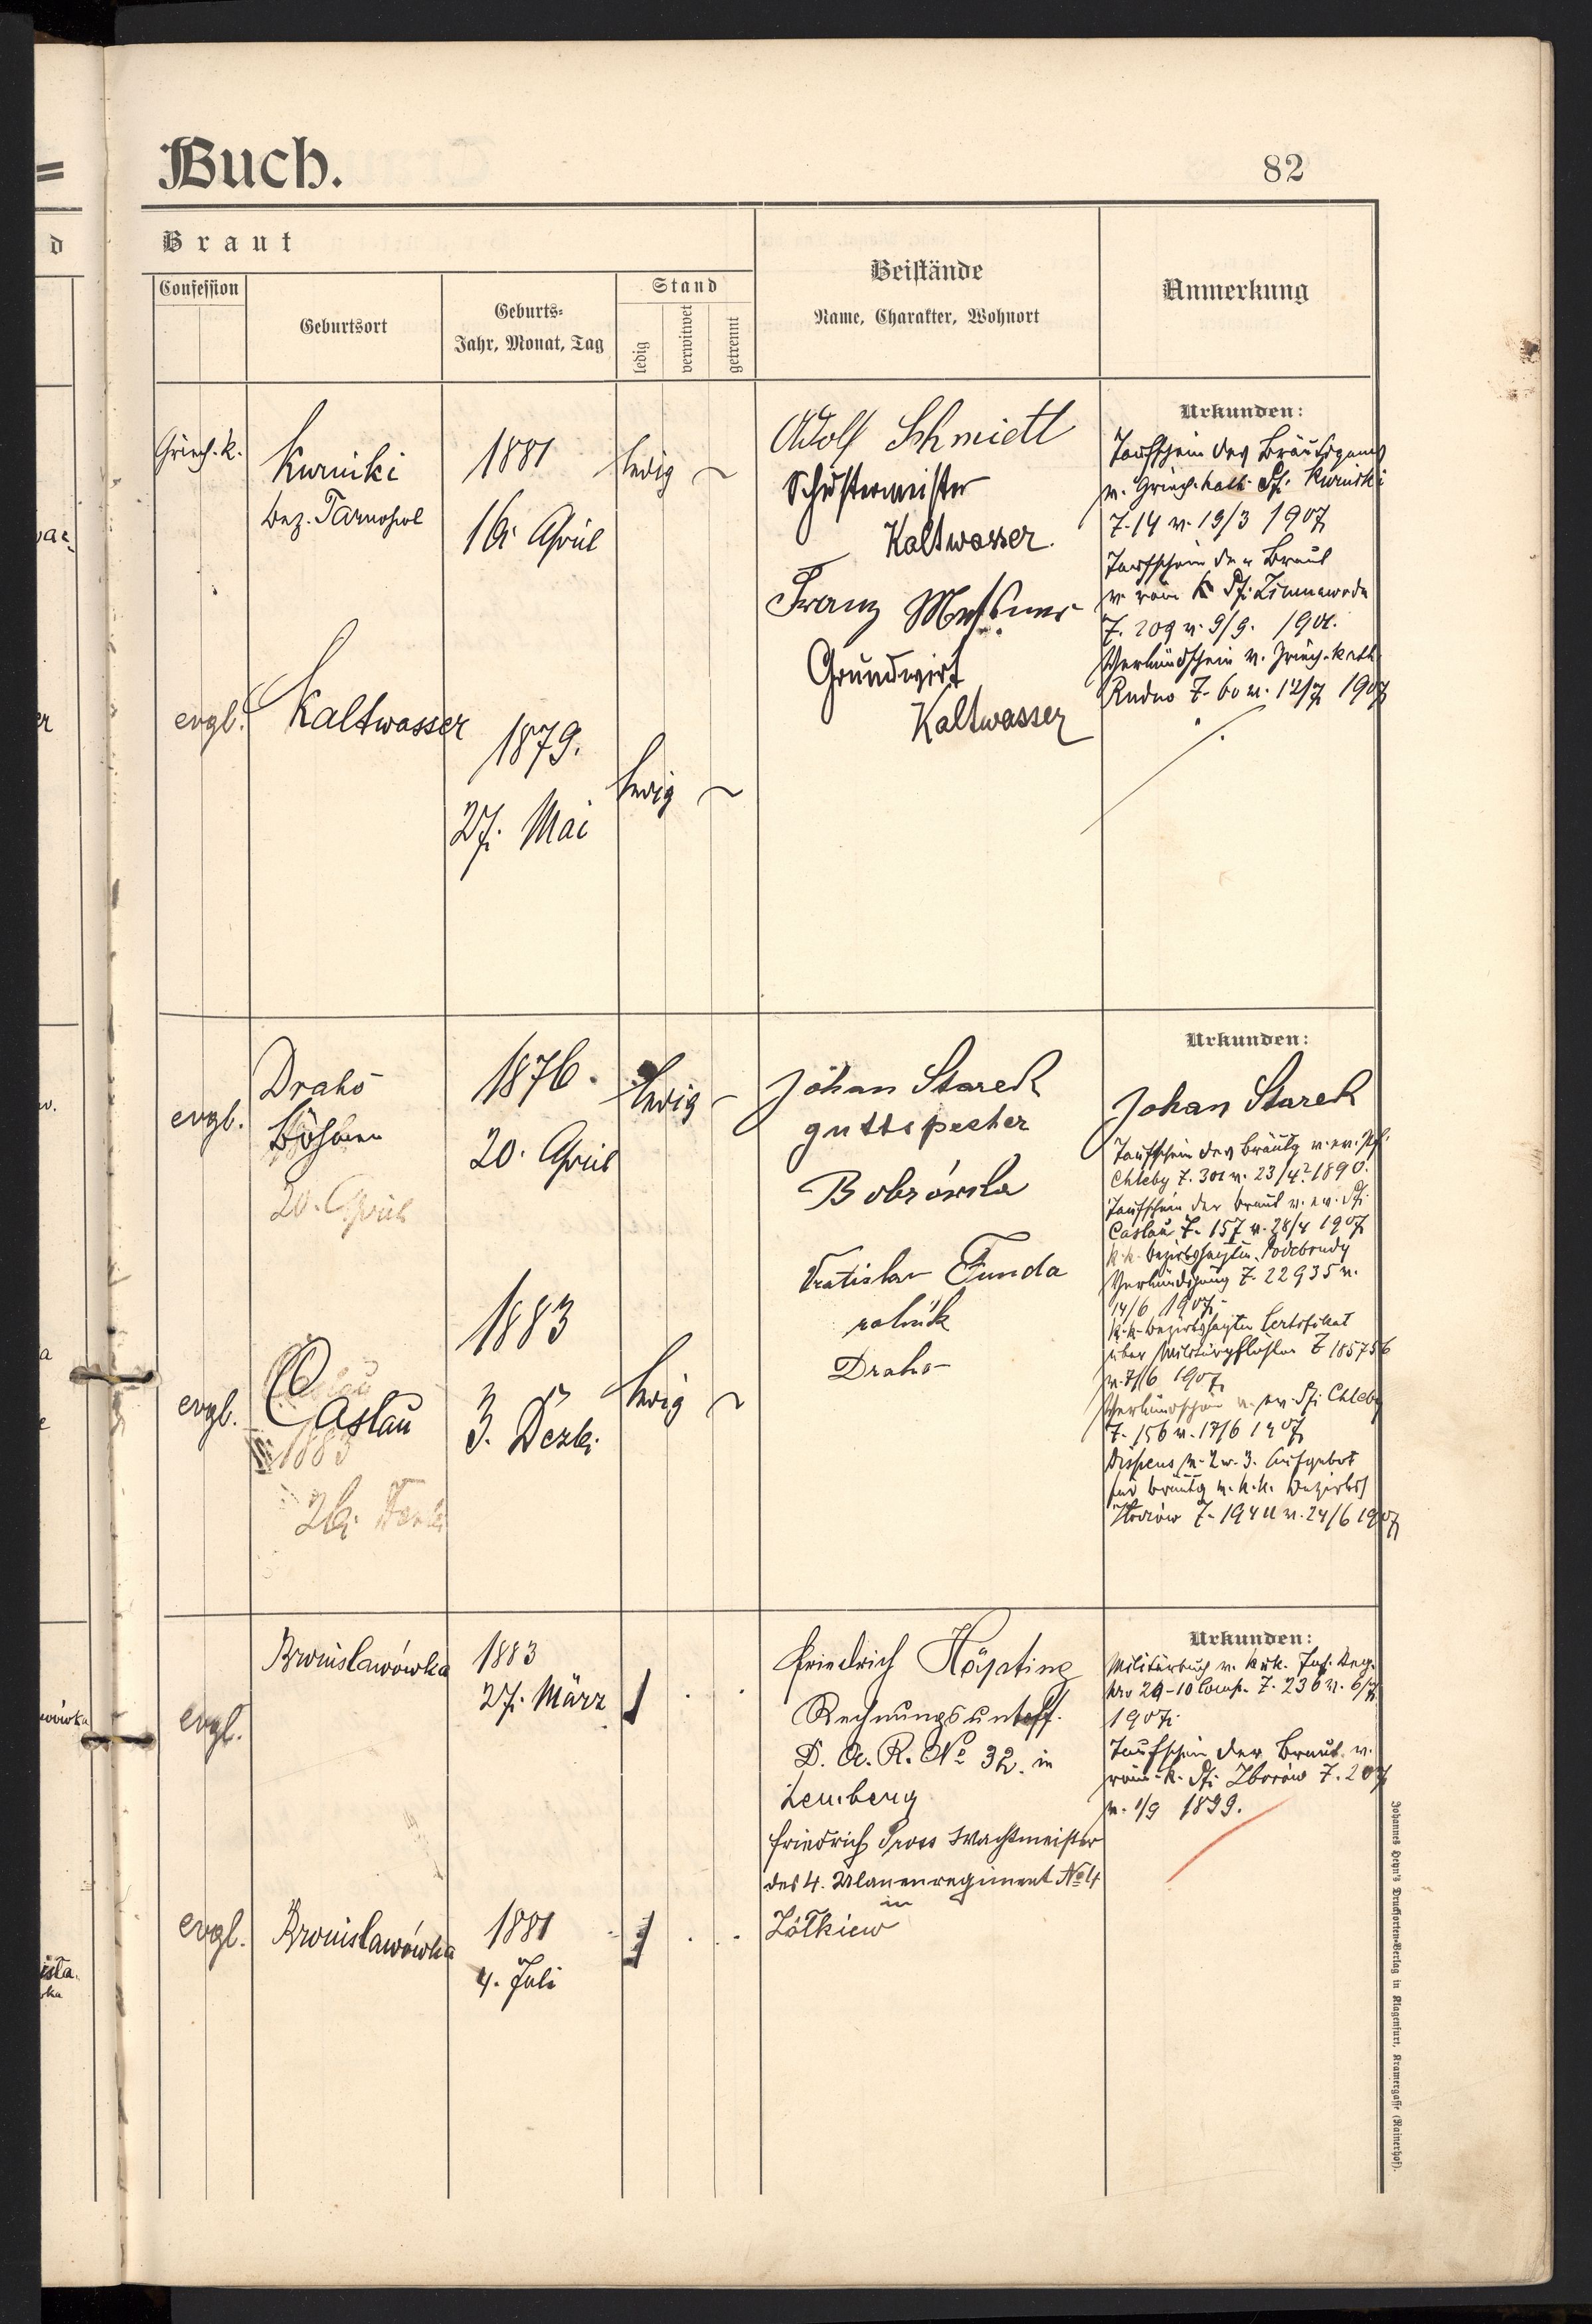 Buch.
82
Braut
Confession
Geburtsort
Geburts-
Jahr, Monat, Tag
Stand
ledig
verwitwet
getrennt
Beistände
Name, Charakter, Wohnort
Anmerkung
Griech. k.
Kurniki
bez. Tarnopol
1881
16. April
ledig
Adolf Schmidt
Schustermeister
Kaltwasser.
Franz
Grundwirt
Kaltwasser
Urkunden:
Taufschein des Bräutigams
v. Griech. kath. Pf. Kurniki
Z. 14 v. 19/3 1907
Taufschein der Braut
v. röm. k. Pf. Zimnawoda
Z. 209 v. 9/9.
Verkündschein v. Griech.-kath.
Rudno Z. 60 v. 12/7 1907
evgl.
Kaltwasser
1879.
27. Mai
ledig
evgl.
Draho
Böhmen
20. April
1876.
20. April
ledig
Johan Starek
guttspechter
Bobrówka
Vratislav Funda
rolnik
Draho
Urkunden:
Johan Starek
Taufschein des Bräutg v. ev. Pf.
Chleby Z. 30 v. 23/4 1890.
Taufschein der Braut v. ev. Pf.
Caslau Z. 157 v. 28/4 1907
k. k. Podebrady
Verkündigung Z. 22935 v.
14/6 1907.
k. k. Certifikat
über Z 185756
v. 7/6 1907.
Verkündschein v. ev. Pf. Chleby
Z. 156 v. 17/6 1907
Dispens v. 2 u. 3. Aufgebot
für Bräutg v. k. k. Bezirks
Z. v. 24/6 1907
evgl.
Caslau
1883
26. Dezb.
1883
3. Dezb.
ledig
evgl.
Bronislawówka
1883
27. März
1
Friedrich Höpting
Rechnungsuntoff.
D. A. R. No 32. in
Lemberg
Friedrich Pross Wachtmeister
des 4. Ulanenregiment No 4
in
Żółkiew
Urkunden:
Militärbuch v. k. u. k. Inf. Reg.
Nro - 10 Comp. Z. 236 v. 6/7.
1907.
Taufschein der Braut v.
röm. k. Pf. Zborów Z. 207
v. 1/9 1899.
evgl.
Bronislawówka
1881
4. Juli
1
Johannes Heyn's Drucksorten-Verlag in Klagenfurt, Kramergasse (Rainerhof).